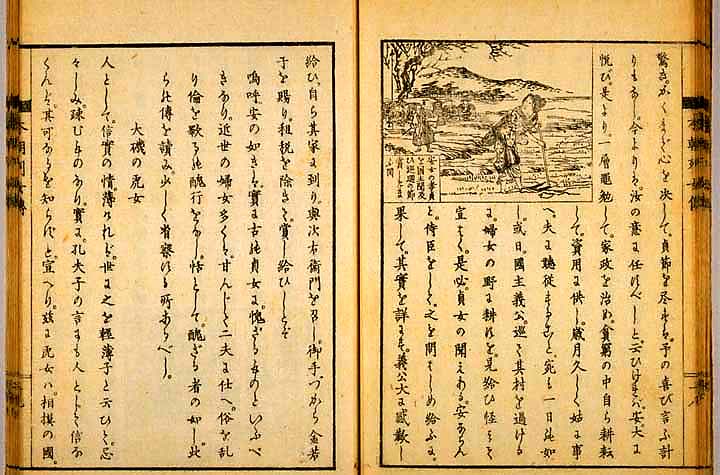 驚き。かくまで心を決して。貞節を尽せる。予の喜び言ふ計
りもなし。今よりは。汝の意に任せべしと云ひければ。安大に
悦び是より一層黽勉して。家政を治め。貧窮の中自ら耕転
して。資用に供し。歳月久しく姑に事
へ。夫に聽從すること。宛も一日の如
し。或日。國主義公。巡して其村を過ける
に。婦女の野に耕せるを。見給ひ怪しみ
宣はく。是必貞女の聞えある。安ならん
と。侍臣をして。之を問はしめ給ふに。
果して。其實を詳にす。義公大に感歎し
安女の孝貞
を国主聞及
ひ巡廻の節
賞したま
ふ図
給ひ。自ら其家に到り。與次右衛門を召し。御手づから金若
干を賜り。租税を除きて。賞し給ひしとぞ
嗚呼安の如きは。實に古の貞女に。愧ざるものといふべ
きなり。近世の婦女多くは。甘んじて二夫に仕へ。俗を乱
り倫を歝る如き醜行をなし。恬として。醜ざる者の如し。此
らは傳を讀み。少しく省察する所あるべし。
大磯の虎女
人として。信實の情。薄ければ。世に之を輕薄子と云ひて。忌
々しみ。疎むものあり。實に。孔夫子の言にも人として信な
くんば。其可なるを知らずと宣へり。茲に虎女は。相摸の國。
本朝列女傳